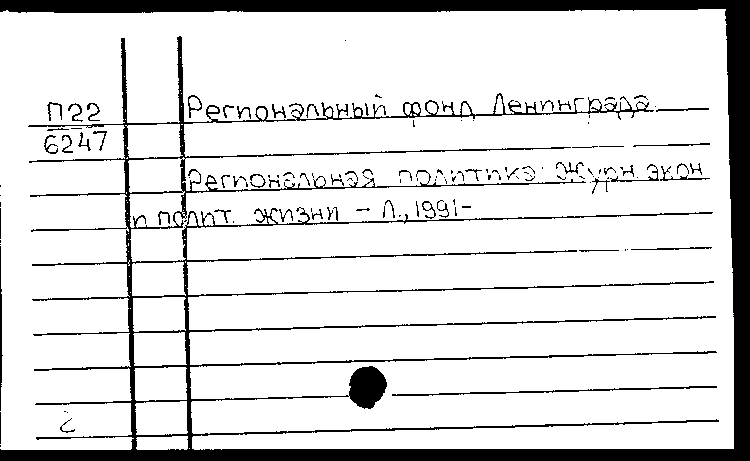 П22
6247
Региональный фонд Ленинграда
Региональная политика: Журн. экон
и полит. жизни - Л., 1991-